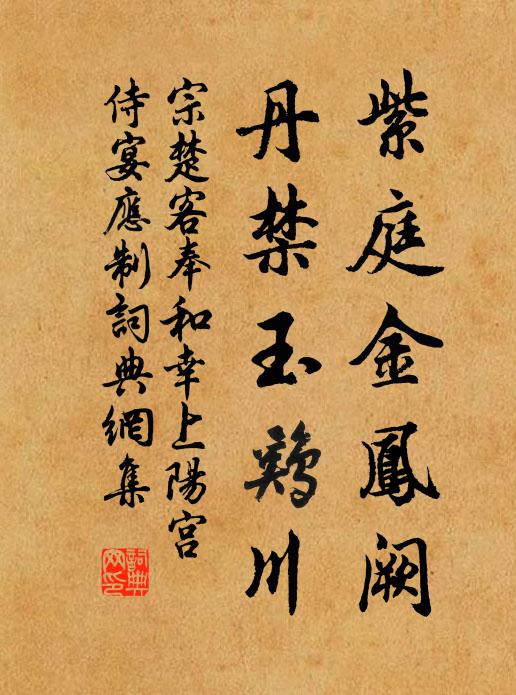 紫庭金鳳阙
丹禁玉鷄川
宗楚客奉和幸上陽宮
侍宴應制詞典網集
詞典網印